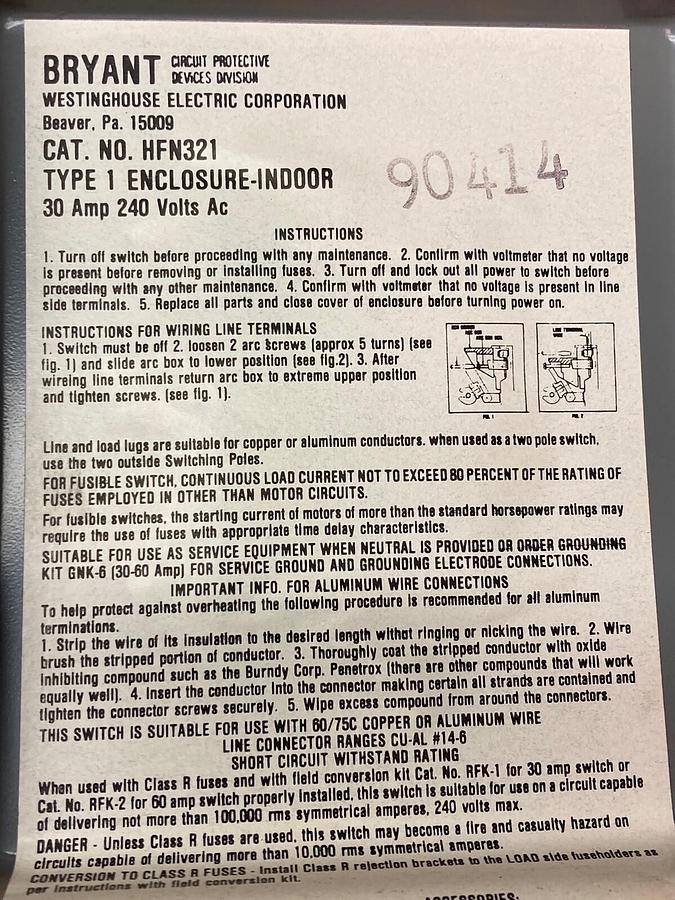 BRYANT CIRCUIT PROTECTIVE
DEVICES DIVISION
WESTINGHOUSE ELECTRIC CORPORATION
Beaver, Pa. 15009
CAT. NO. HFN321
TYPE 1 ENCLOSURE-INDOOR
30 Amp 240 Volts Ac
90414
INSTRUCTIONS
1. Turn off switch before proceeding with any maintenance. 2. Confirm with voltmeter that no voltage
is present before removing or installing fuses. 3. Turn off and lock out all power to switch before
proceeding with any other maintenance. 4. Confirm with voltmeter that no voltage is present in line
side terminals. 5. Replace all parts and close cover of enclosure before turning power on.
INSTRUCTIONS FOR WIRING LINE TERMINALS
1. Switch must be off 2. loosen 2 arc screws (approx 5 turns) (see
fig. 1) and slide arc box to lower position (see fig.2). 3. After
wireing line terminals return arc box to extreme upper position
and tighten screws. (see fig. 1).
FIG. 1
FIG. 2
Line and load lugs are suitable for copper or aluminum conductors. when used as a two pole switch,
use the two outside Switching Poles.
FOR FUSIBLE SWITCH, CONTINUOUS LOAD CURRENT NOT TO EXCEED 80 PERCENT OF THE RATING OF
FUSES EMPLOYED IN OTHER THAN MOTOR CIRCUITS.
For fusible switches, the starting current of motors of more than the standard horsepower ratings may
require the use of fuses with appropriate time delay characteristics.
SUITABLE FOR USE AS SERVICE EQUIPMENT WHEN NEUTRAL IS PROVIDED OR ORDER GROUNDING
KIT GNK-6 (30-60 Amp) FOR SERVICE GROUND AND GROUNDING ELECTRODE CONNECTIONS.
IMPORTANT INFO. FOR ALUMINUM WIRE CONNECTIONS
To help protect against overheating the following procedure is recommended for all aluminum
terminations.
1. Strip the wire of its insulation to the desired length without ringing or nicking the wire. 2. Wire
brush the stripped portion of conductor. 3. Thoroughly coat the stripped conductor with oxide
inhibiting compound such as the Burndy Corp. Penetrox (there are other compounds that will work
equally well). 4. Insert the conductor into the connector making certain all strands are contained and
tighten the connector screws securely. 5. Wipe excess compound from around the connectors.
THIS SWITCH IS SUITABLE FOR USE WITH 60/75C COPPER OR ALUMINUM WIRE
LINE CONNECTOR RANGES CU-AL #14-6
SHORT CIRCUIT WITHSTAND RATING
When used with Class R fuses and with field conversion kit Cat. No. RFK-1 for 30 amp switch or
Cat. No. RFK-2 for 60 amp switch properly installed, this switch is suitable for use on a circuit capable
of delivering not more than 100,000 rms symmetrical amperes, 240 volts max.
DANGER - Unless Class R fuses are used, this switch may become a fire and casualty hazard on
circuits capable of delivering more than 10,000 rms symmetrical amperes.
CONVERSION TO CLASS R FUSES - Install Class R rejection brackets to the LOAD side fuseholders as
per instructions with field conversion kit.
ACCESSORIES: